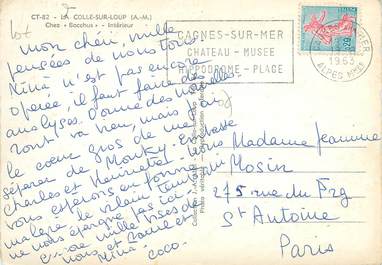 CT-82 - LA COLLE-SUR-LOUP (A.-M.)
Chez "Bacchus" - Intérieur
CAGNES-SUR-MER
CHATEAU - MUSEE
HIPPODROME - PLAGE
1963
ALPES MMES
0,20
mon chéri, mille
pensées de nous tous
Nina n'est pas encore
Opérée, il faut faire des
analyses. Donne des nouvelles.
Tout va bien, mais j'ai
le cœur gros de me
séparer de Embrasse
Charles et Henriette
vous espérons en forme
malgré le vilain temps qui
ne nous épargne pas ici.
mille bises de
nous et
Nina. coco.
Madame Jeannine
Mosin
275 rue du Fbg
St Antoine
Paris